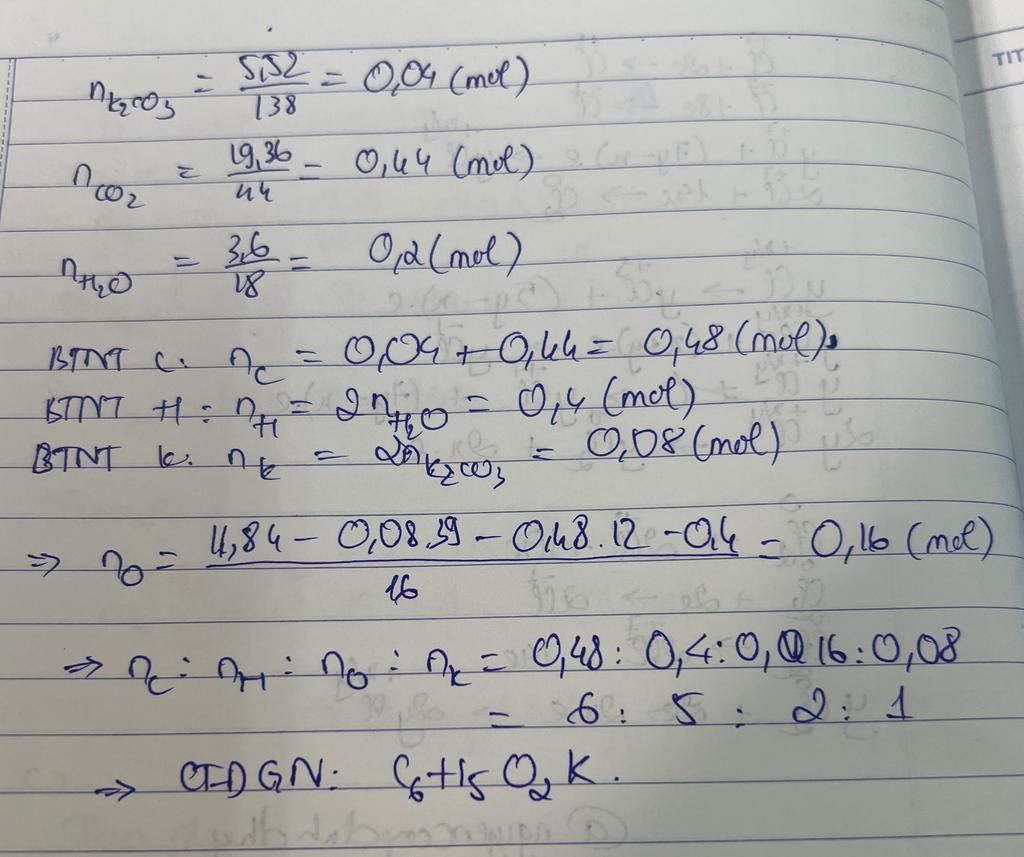 TIT
n_{K2CO3} = \frac{5,52}{138} = 0,04 (mol)
n_{CO2} = \frac{19,36}{44} = 0,44 (mol)
n_{H2O} = \frac{3,6}{18} = 0,2 (mol)
BTNT C: n_C = 0,04 + 0,44 = 0,48 (mol).
BTNT H: n_H = 2n_{H2O} = 0,4 (mol)
BTNT K: n_K = 2n_{K2CO3} = 0,08 (mol)
⇒ n_O = \frac{11,84 - 0,08.39 - 0,48.12 - 0,4}{16} = 0,16 (mol)
⇒ n_C : n_H : n_O : n_K = 0,48 : 0,4 : 0,16 : 0,08
= 6 : 5 : 2 : 1
⇒ CTĐGN: C6H5O2K.